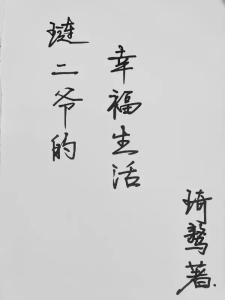 璉二爷的
幸福生活
琦骜著